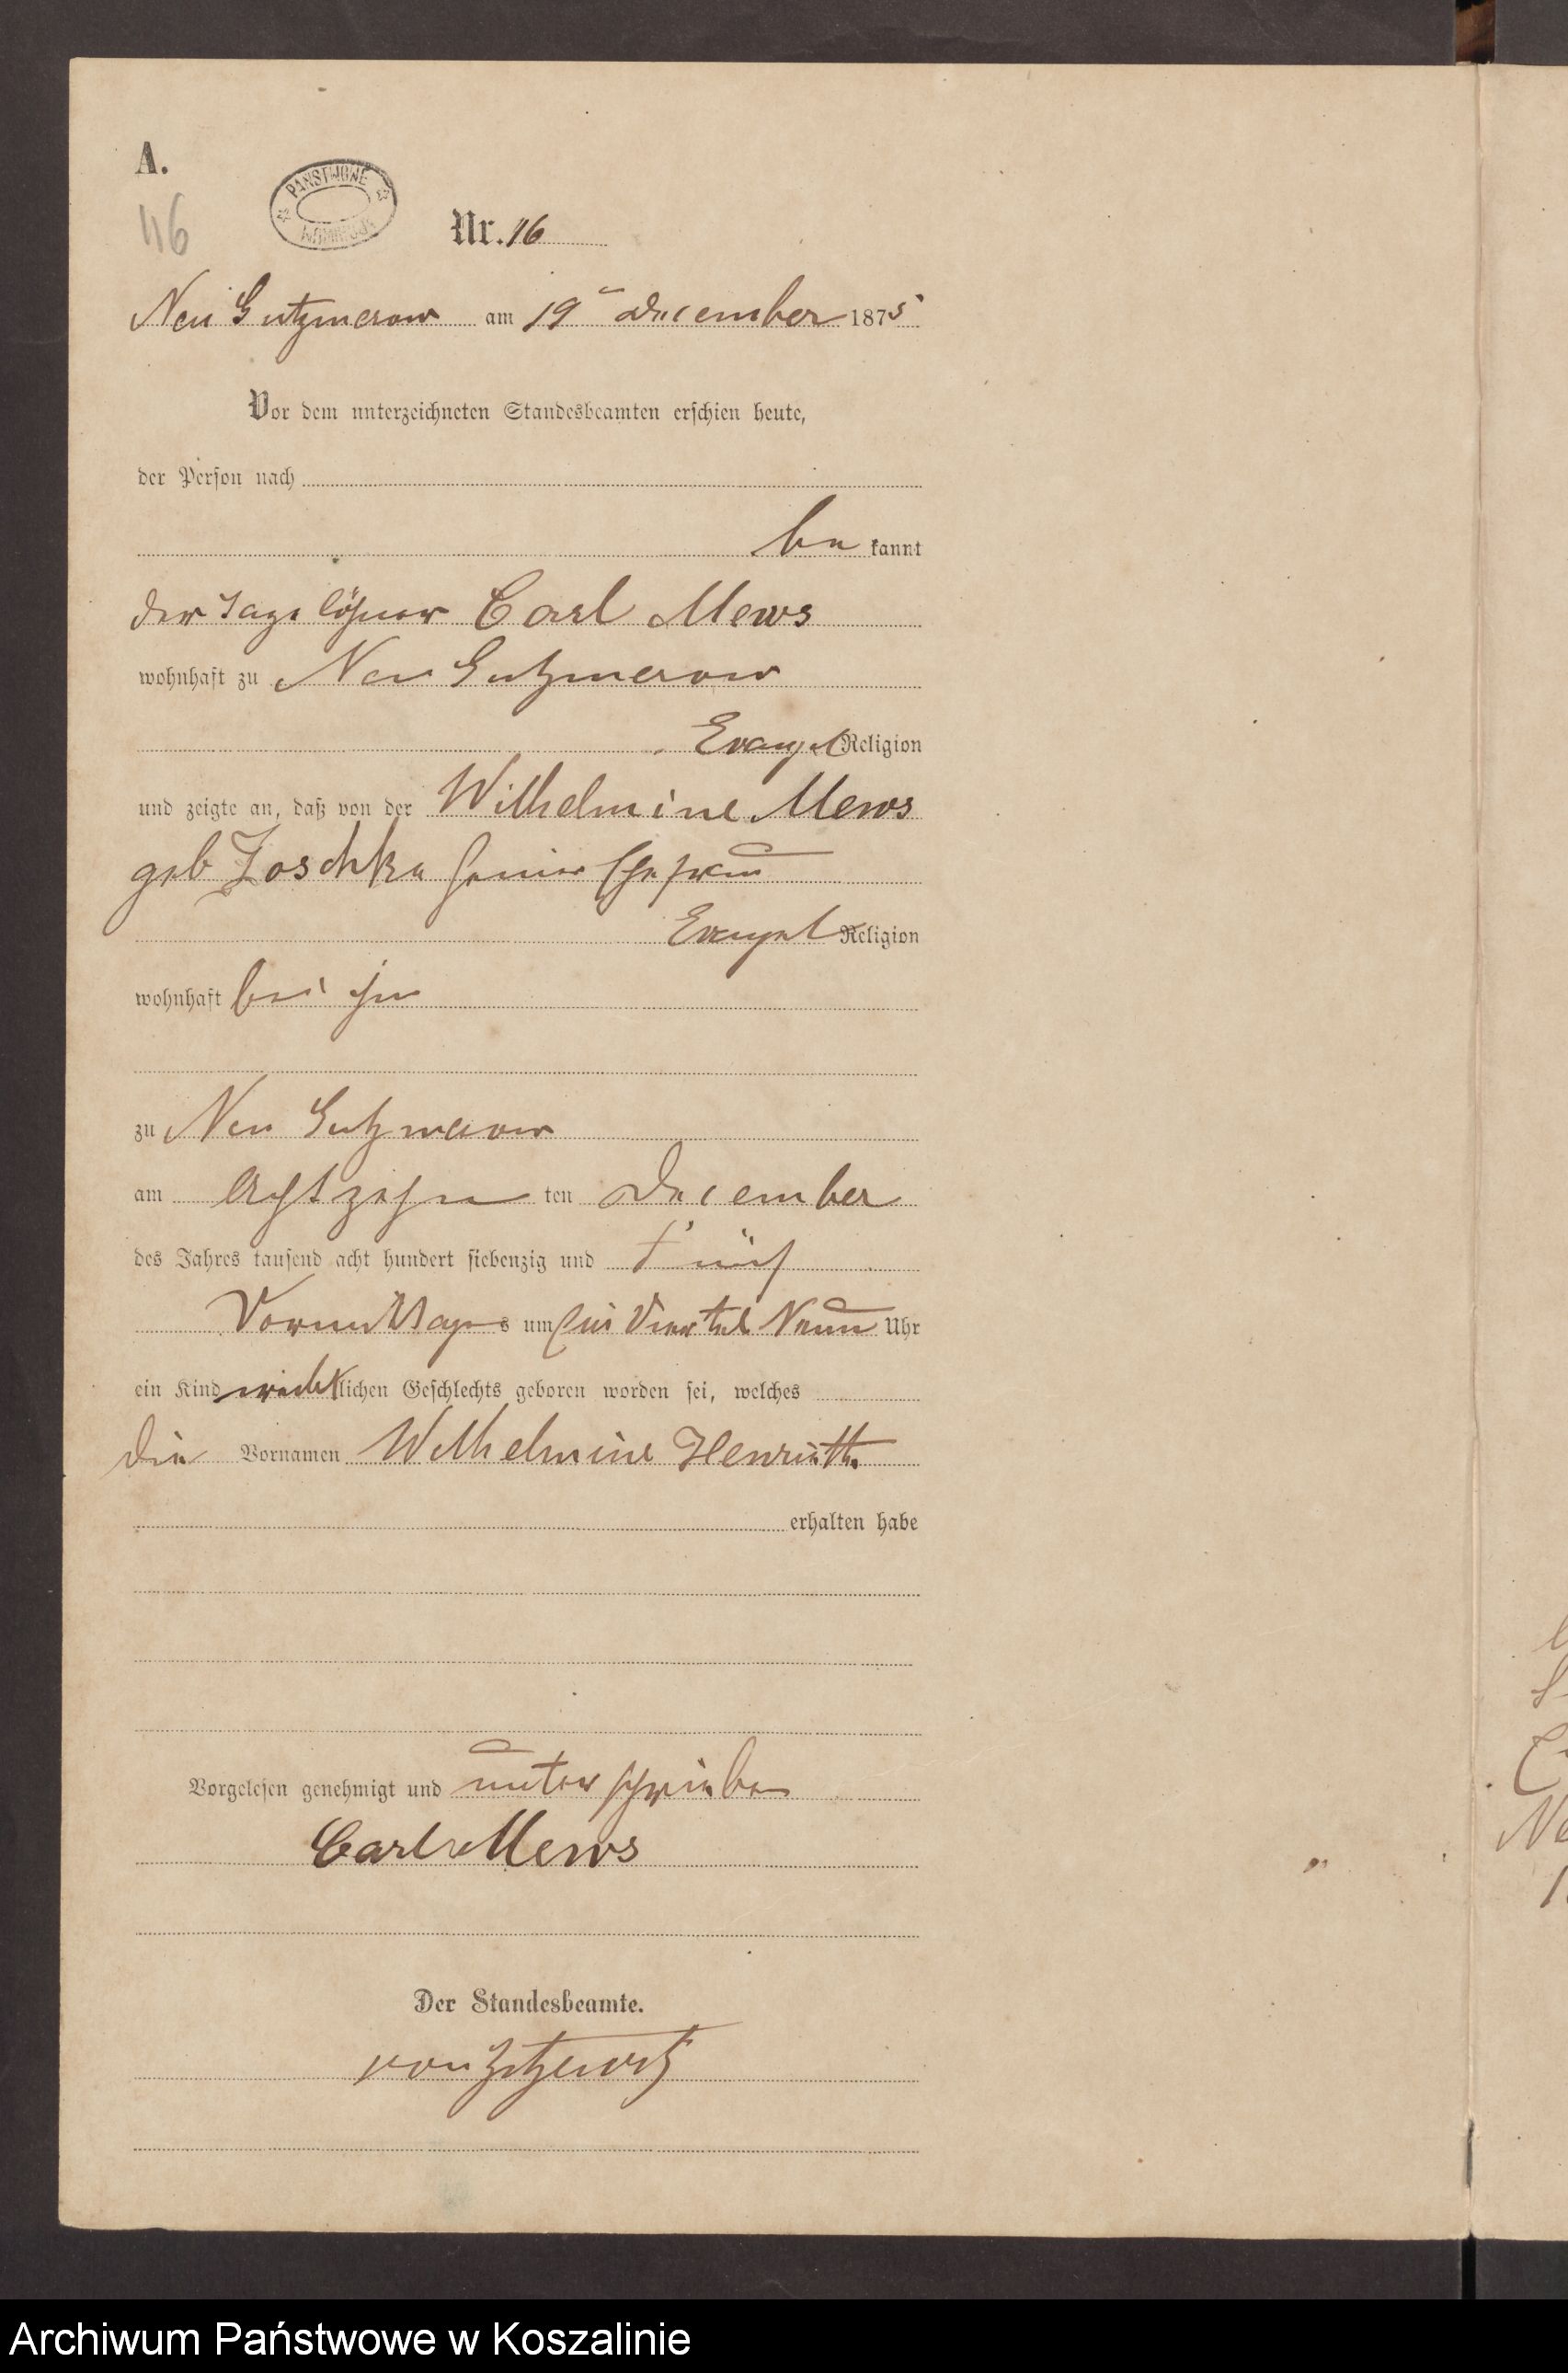 A.
46
PAŃSTWOWE
Nr. 16
Neu Gutzmerow am 19ten December 1875
Vor dem unterzeichneten Standesbeamten erschien heute,
der Person nach
be kannt
der Tagelöhner Carl Mews
wohnhaft zu Neu Gutzmerow
Evangel Religion
und zeigte an, daß von der Wilhelmine Mews
geb Joschke seiner Ehefrau
Evangel Religion
wohnhaft bei ihm
zu Neu Gutzmerow
am Achtzehn ten December
des Jahres tausend acht hundert siebenzig und Fünf
Vormittags um Ein Viertel Neun Uhr
ein Kind weiblichen Geschlechts geboren worden sei, welches
die Vornamen Wilhelmine Henriette
erhalten habe
Vorgelesen genehmigt und unterschrieben
Carl Mews
Der Standesbeamte.
von Zitzewitz
Archiwum Państwowe w Koszalinie